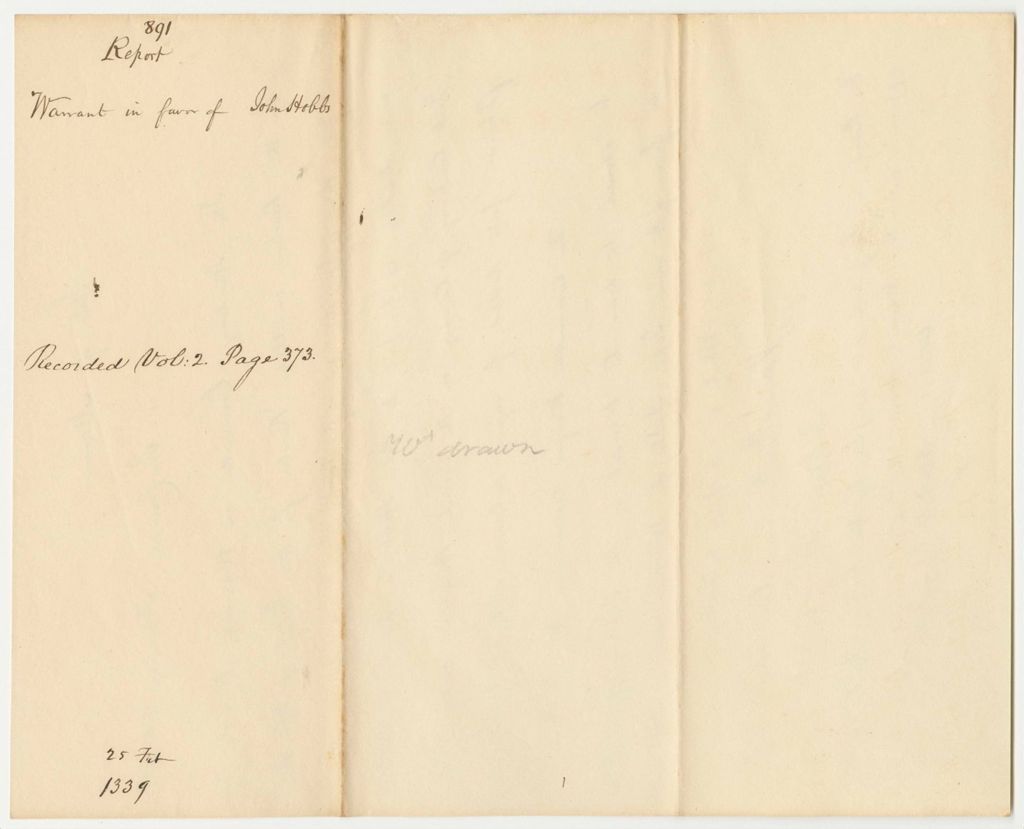 891
Report
Warrant in favor of John Hobbs
Recorded Vol: 2. Page 373.
Wt drawn
25 Feb
1339